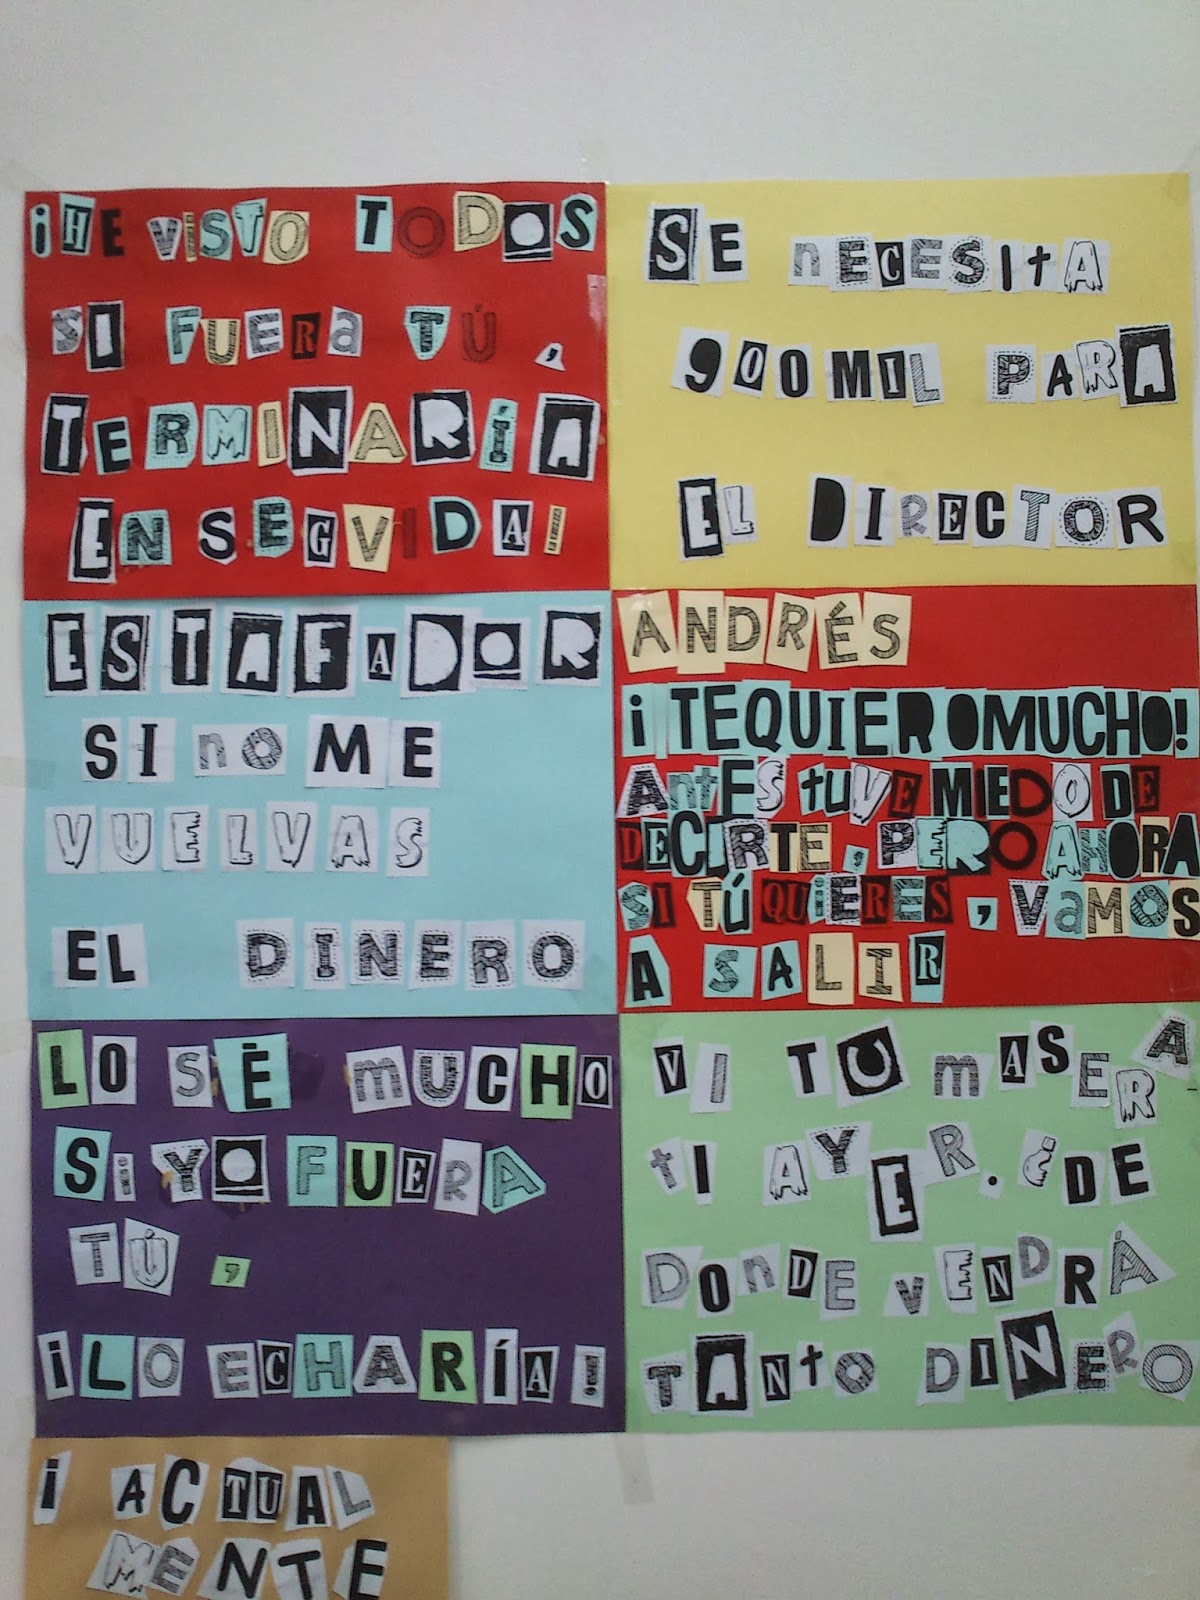 ¡HE VISTO TODOS
SI FUERA TÚ,
TERMINARÍA
EN SEGVIDA!
SE nECESItA
900 MIL PARA
EL DIRECTOR
ESTAFADOR
SI nO ME
VUELVAS
EL DINERO
ANDRÉS
¡TE QUIERO MUCHO!
AntES tuVE MIEDO DE
DECIRTE, PERO AHORA
SI TÚ QUiERES, VaMOS
A SALIR
LO SÉ mUCHO
Si YO FUERA
TÚ,
¡LO ECHARÍA!
VI TU mASERA
tI AYER. ¿DE
DOnDE vENDRÁ
TANtO DINERO
¡ACTUAL
MENTE